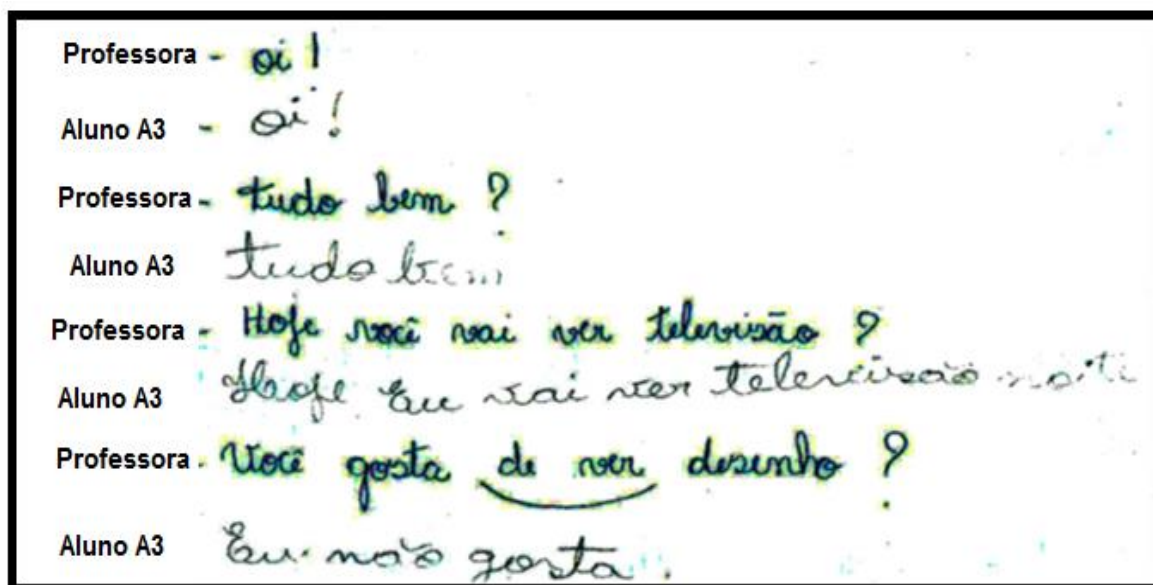 Professora - oi!
Aluno A3 - oi!
Professora - tudo bem?
Aluno A3 tudo bem
Professora - Hoje você vai ver televisão?
Aluno A3 Hoje Eu vai ver televisão noite
Professora - Você gosta de ver desenho?
Aluno A3 Eu não gosta.